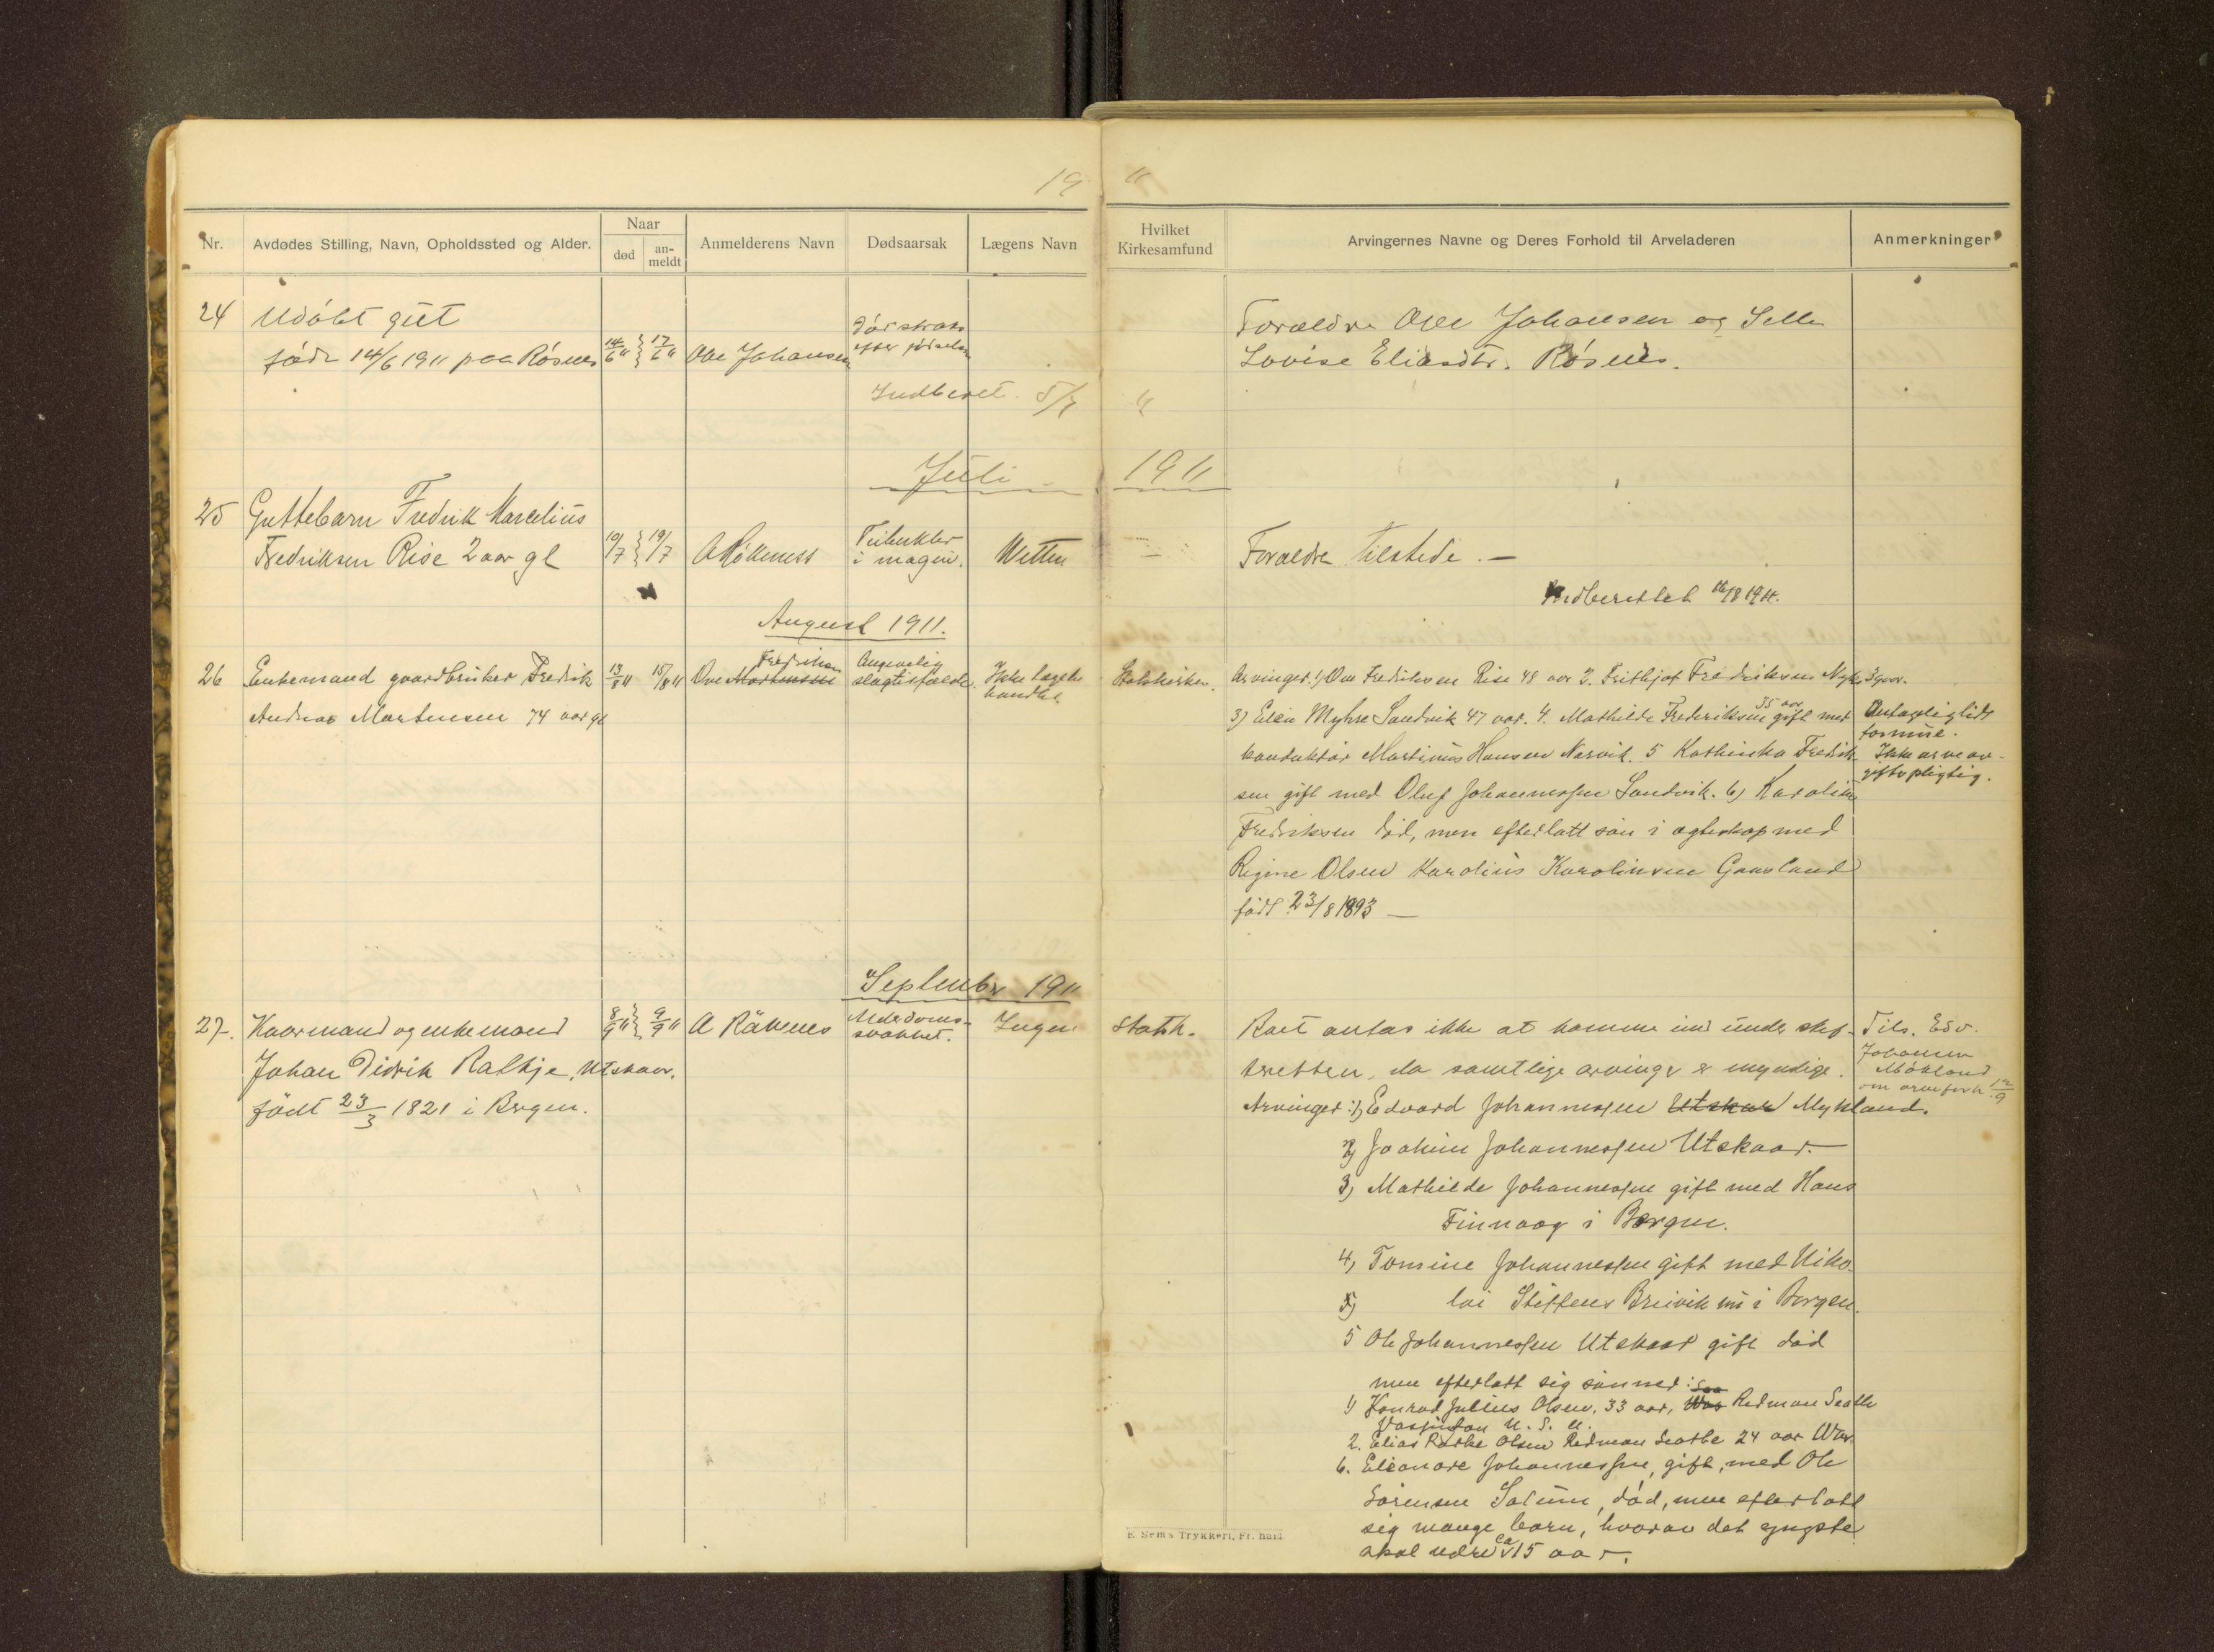 19 11
Nr. Avdødes Stilling, Navn, Opholdssted og Alder. Naar død an-meldt Anmelderens Navn Dødsaarsak Lægens Navn Hvilket Kirkesamfund Arvingernes Navne og Deres Forhold til Arveladeren Anmerkninger
24 Udøbt gut
født 14/6 1911 paa Røsnes 14/6 11 17/6 11 Ove Johansen
Død straks
efter fødselen
Indberet. 5/7 11
Forældre Ove Johansen og
Lovise Eliasdtr. Røsnes.
Juli 1911
25 Guttebarn Fredrik Marcelius
Fredriksen Risø 2 aar gl 19/7 19/7
Tuberkler
i magen. Wetten
Forældre tilstede. —
Indberettet 1911.
August 1911.
26 Enkemand gaardbruker Fredrik
Andreas Mortensen 74 aar gl
13/8 11 15/8 11 Ove Mortensen Fredriksen
Angivelig
slagtilfælde. Ikke læge
Statskirken.
Arvinger: 1) Ove Fredriksen Risø 48 aar 2. Frithjof Fredriksen
3) Elen Myhre Sandvik 47 aar. 4. Mathilde Frederiksen 35 aar gift med
konduktør Martinus Hansen Narvik. 5 Kathinka Fredrik
sen gift med Oluf Johannessen Sandvik. 6) Karolius
Fredriksen død, men efterlatt søn i egteskap med
Regine Olsen Karolius Karoliussen Gaasland
født 23/8 1893 —
Ikke arveav-
giftspligtig.
September 1911
27. Kaarmand og enkemand
Johan Didrik Ratkje, Utskaar.
født 23/3 1821 i Bergen.
8/9 11 9/9 11
Alderdoms-
svakhet. Ingen Statsk.
Boet antas ikke at komme ind under skif-
teretten, da samtlige arvinger er myndige.
Arvinger: 1) Edvard Johannessen Utskar Mykland.
2) Joakim Johannessen Utskaar.
3) Mathilde Johannessen gift med Hans
Finnaag i Bergen.
4) Tomine Johannessen gift med Niko-
5) lai Steffens Breivik nu i Bergen.
5 Ole Johannessen Utskaar gift død
men efterlatt sig sønner:
1) Konrad Julius Olsen, 33 aar, Redman Seatle
Vasjinton U. S. A.
2. Elias Ratke Olsen Redman Seatle 24 aar
6. Eleonore Johannessen, gift, med Ole
Sørensen, død, men efterlatt
sig mange barn, hvorav det yngste
skal være ca 15 aar.
Tils. Edv.
Johannesen
om arveforh. 12/9
E. Sem's Trykkeri, Fr.hald